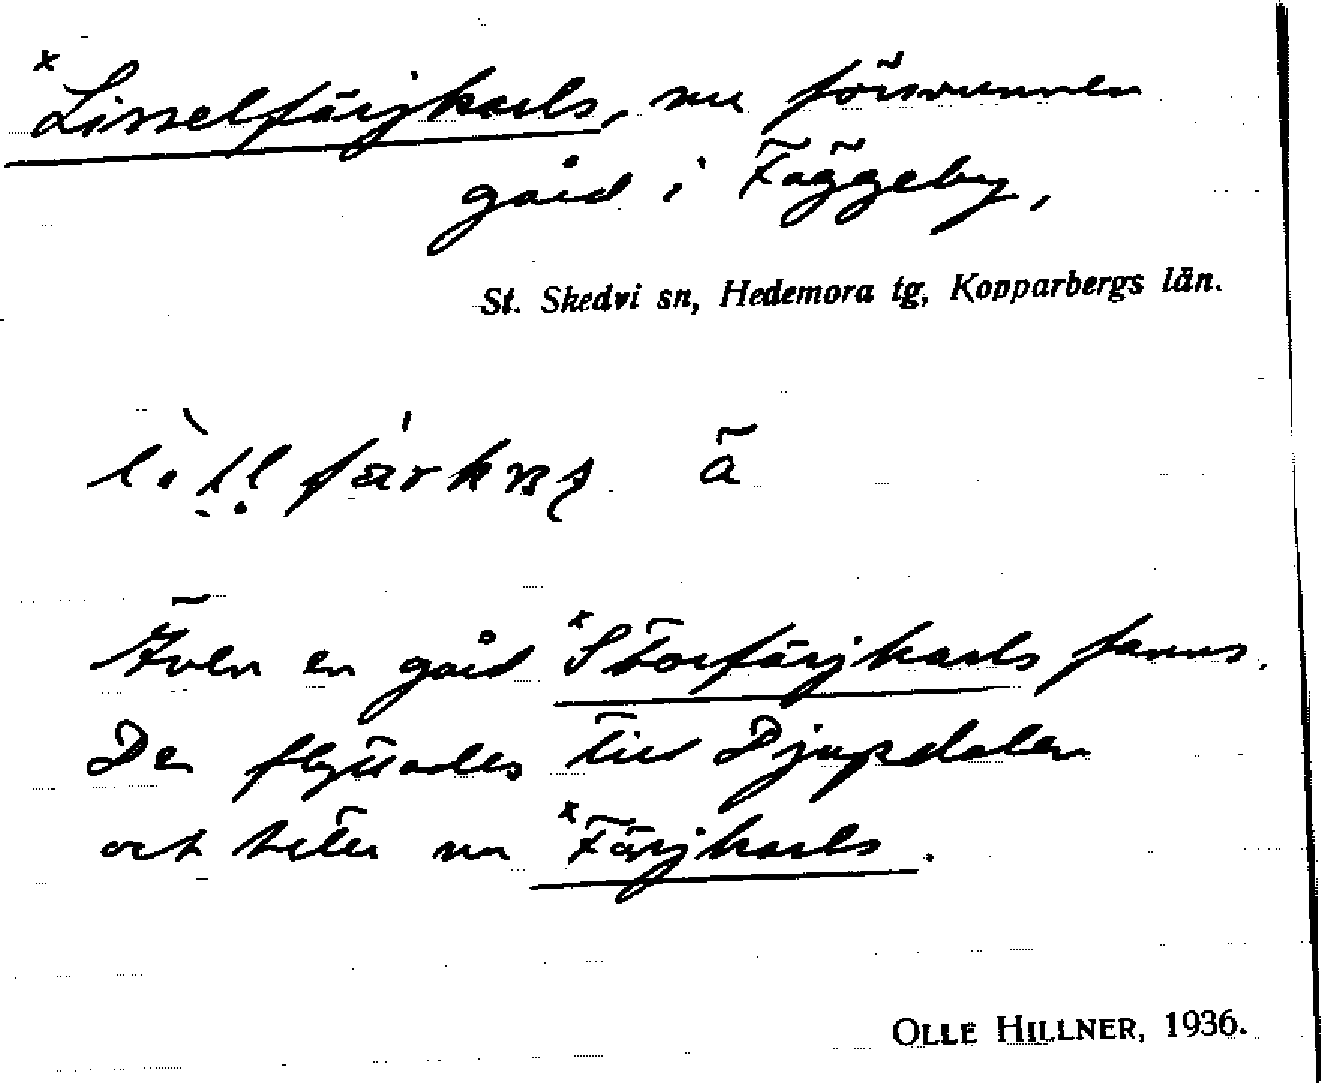 ×Lisselfärjkarls, nu försvunnen
gård i Fäggeby,
St. Skedvi sn, Hedemora tg, Kopparbergs län.
ā
Även en gård ×Storfärjkarls fanns.
Den flyttades till Djupdalen
och heter nu ×Färjkarls.
OLLE HILLNER, 1936.